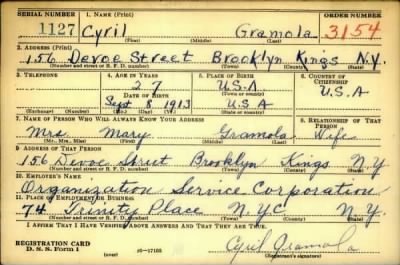 SERIAL NUMBER 1. NAME (Print) ORDER NUMBER
1127 Cyril Gramola 3154
(First) (Middle) (Last)
2. ADDRESS (Print)
156 Devoe Street Brooklyn Kings N.Y.
(Number and street or R. F. D. number) (Town) (County) (State)
3. TELEPHONE 4. AGE IN YEARS 5. PLACE OF BIRTH 6. COUNTRY OF CITIZENSHIP
27 U.S.A U.S.A
DATE OF BIRTH (Town or county)
Sept 8 1913 U S A
(Exchange) (Number) (Mo.) (Day) (Yr.) (State or country)
7. NAME OF PERSON WHO WILL ALWAYS KNOW YOUR ADDRESS 8. RELATIONSHIP OF THAT PERSON
Mrs Mary Gramola Wife
(Mr., Mrs., Miss) (First) (Middle) (Last)
9. ADDRESS OF THAT PERSON
156 Devoe Street Brooklyn Kings N.Y
(Number and street or R. F. D. number) (Town) (County) (State)
10. EMPLOYER'S NAME
Organization Service Corporation
11. PLACE OF EMPLOYMENT OR BUSINESS
74 Trinity Place N.Y.C N.Y.
(Number and street or R. F. D. number) (Town) (County) (State)
I AFFIRM THAT I HAVE VERIFIED ABOVE ANSWERS AND THAT THEY ARE TRUE.
REGISTRATION CARD
D. S. S. Form 1 (over) 16—17105 Cyril Gramola
(Registrant's signature)